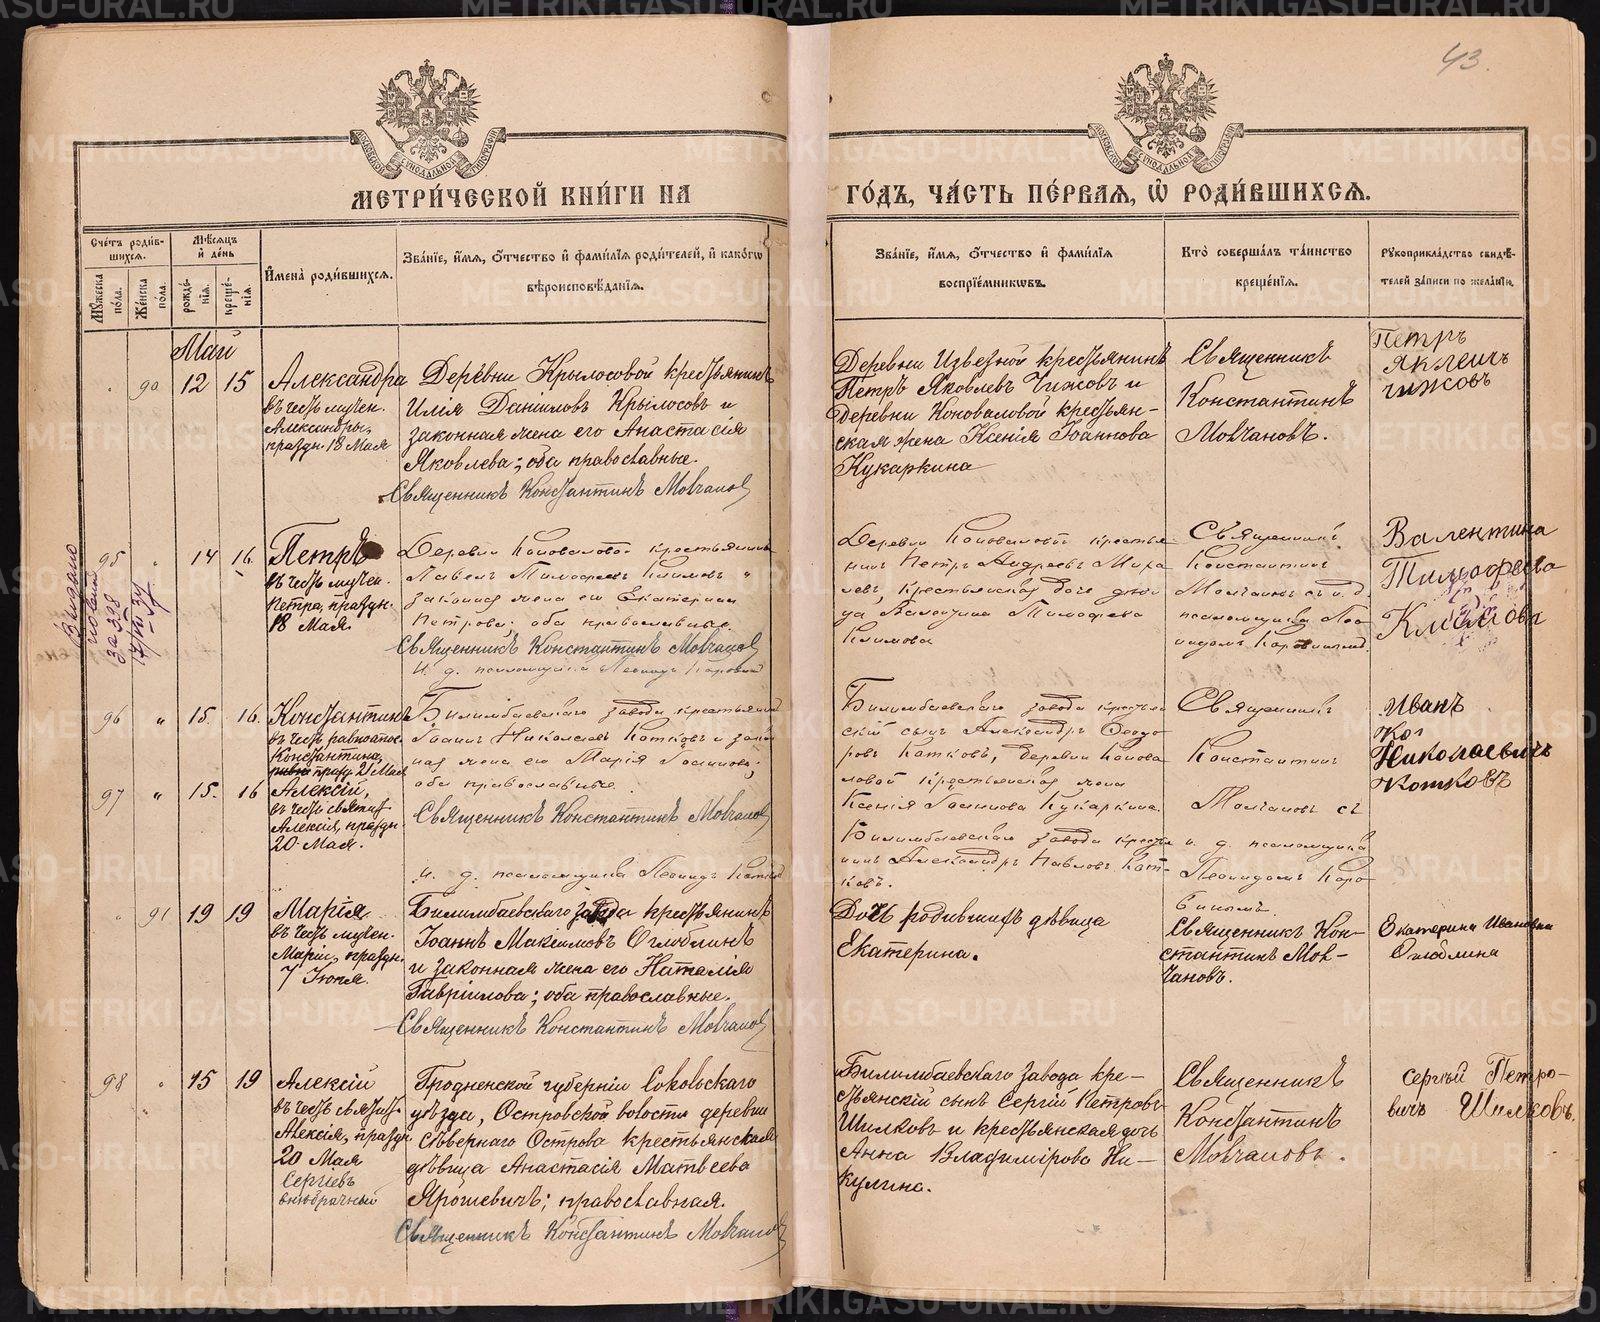 43.
МЕТРИ́ЧЕСКОЙ КНИ́ГИ НА
ГО́ДЪ, ЧА́СТЬ ПЕ́РВАЯ, Ѽ РОДИ́ВШИХСЯ.
Сче́тъ роди́в-
шихся.
Мѣ́сяцъ
и҆ де́нь
Мꙋжеска по́ла.
Же́нска по́ла.
рожде́-нїя.
креще́-нїя.
И҆мена̀ роди́вшихся.
Зва́нїе, и҆́мя, ѻ҆́тчество и҆ фами́лїя роди́телей, и҆ како́гѡ
вѣроисповѣ́данїя.
Зва́нїе, и҆́мя, ѻ҆́тчество и҆ фами́лїя
воспрїе́мникѡвъ.
Кто̀ соверша́лъ та́инство
креще́нїя.
Рꙋкоприкла́дство свидѣ́-
телей за́писи по жела́нїю.
Май
90 12 15
Александра
въ честь мучен.
Александры,
праздн. 18 Мая
Деревни Крылосовой крестьянинъ
Илія Даніиловъ Крылосовъ и
законная жена его Анастасія
Яковлева; оба православные.
Священникъ Константинъ Молчановъ
Деревни Извезной крестьянинъ
Петръ Яковлевъ Чижовъ и
деревни Коноваловой крестьян-
ская жена Ксенія Іоаннова
Кукаркина
Священникъ
Константинъ
Молчановъ.
Петръ
Яклеичь
чижовъ
Выдано
за 398
95 " 14 16.
Петръ
въ честь мучен.
Петра, праздн.
18 Мая.
Деревни Коноваловой крестьянинъ
Павелъ Тимофеевъ Климовъ и
законная жена его Екатерина
Петрова: оба православные.
Священникъ Константинъ Молчановъ
И. д. псаломщика Леонидъ
Деревни Коноваловой крестья
нинъ Петръ Андреевъ Миха
левъ, крестьянская дочь деви
ца Валентина Тимофеева
Климова
Священникъ
Константинъ
Молчановъ съ и. д.
псаломщика Лео
нидомъ
Валентина
Тимофеева
Климова
96 " 15. 16.
Константинъ
въ честь равноапос.
Константина,
празд. 21 Мая
97 " 15. 16
Алексій,
въ честь святит.
Алексія, праздн
20 Мая.
Билимбаевскаго завода крестьянинъ
Іоаннъ Николаевъ Котковъ и закон
ная жена его Марія Іоаннова;
оба православные.
Священникъ Константинъ Молчановъ
и. д. псаломщика Леонидъ
Билимбаевскаго завода крестьян
скій сынъ Александръ Феодо
ровъ Котковъ, деревни Конова
ловой крестьянская жена
Ксенія Іоаннова Кукаркина.
Билимбаевскаго завода крестья
нинъ Александръ Павловъ Кот-
ковъ.
Священникъ
Константинъ
Молчановъ съ
и. д. псаломщика
Леонидомъ Коро
Иванъ
Николаевичь
Котковъ
91 19 19
Марія
въ честь мучен.
Маріи, праздн.
7 Іюня.
Билимбаевскаго завода крестьянинъ
Іоаннъ Максимовъ Оглоблинъ
и законная жена его Наталія
Гавріилова; оба православные.
Священникъ Константинъ Молчановъ
Дочь родившихъ дѣвица
Екатерина.
Священникъ Кон-
стантинъ Мол-
чановъ.
Екатерина Ивановна
Оглоблина
98 " 15 19
Алексій
въ честь святит.
Алексія, праздн
20 Мая
Сергѣевъ
внѣбрачный
Гродненской губерніи Сокольскаго
уѣзда, Островской волости деревни
Сѣвернаго Острова крестьянская
дѣвица Анастасія Матвеева
Ярошевичъ; православная.
Священникъ Константинъ Молчановъ
Билимбаевскаго Завода кре-
стьянскій сынъ Сергій Петровъ
Шилковъ и крестьянская дочь
Анна Владимірова Ни-
кулина.
Священникъ
Константинъ
Молчановъ.
Сергѣй Петро-
вичъ Шилковъ.